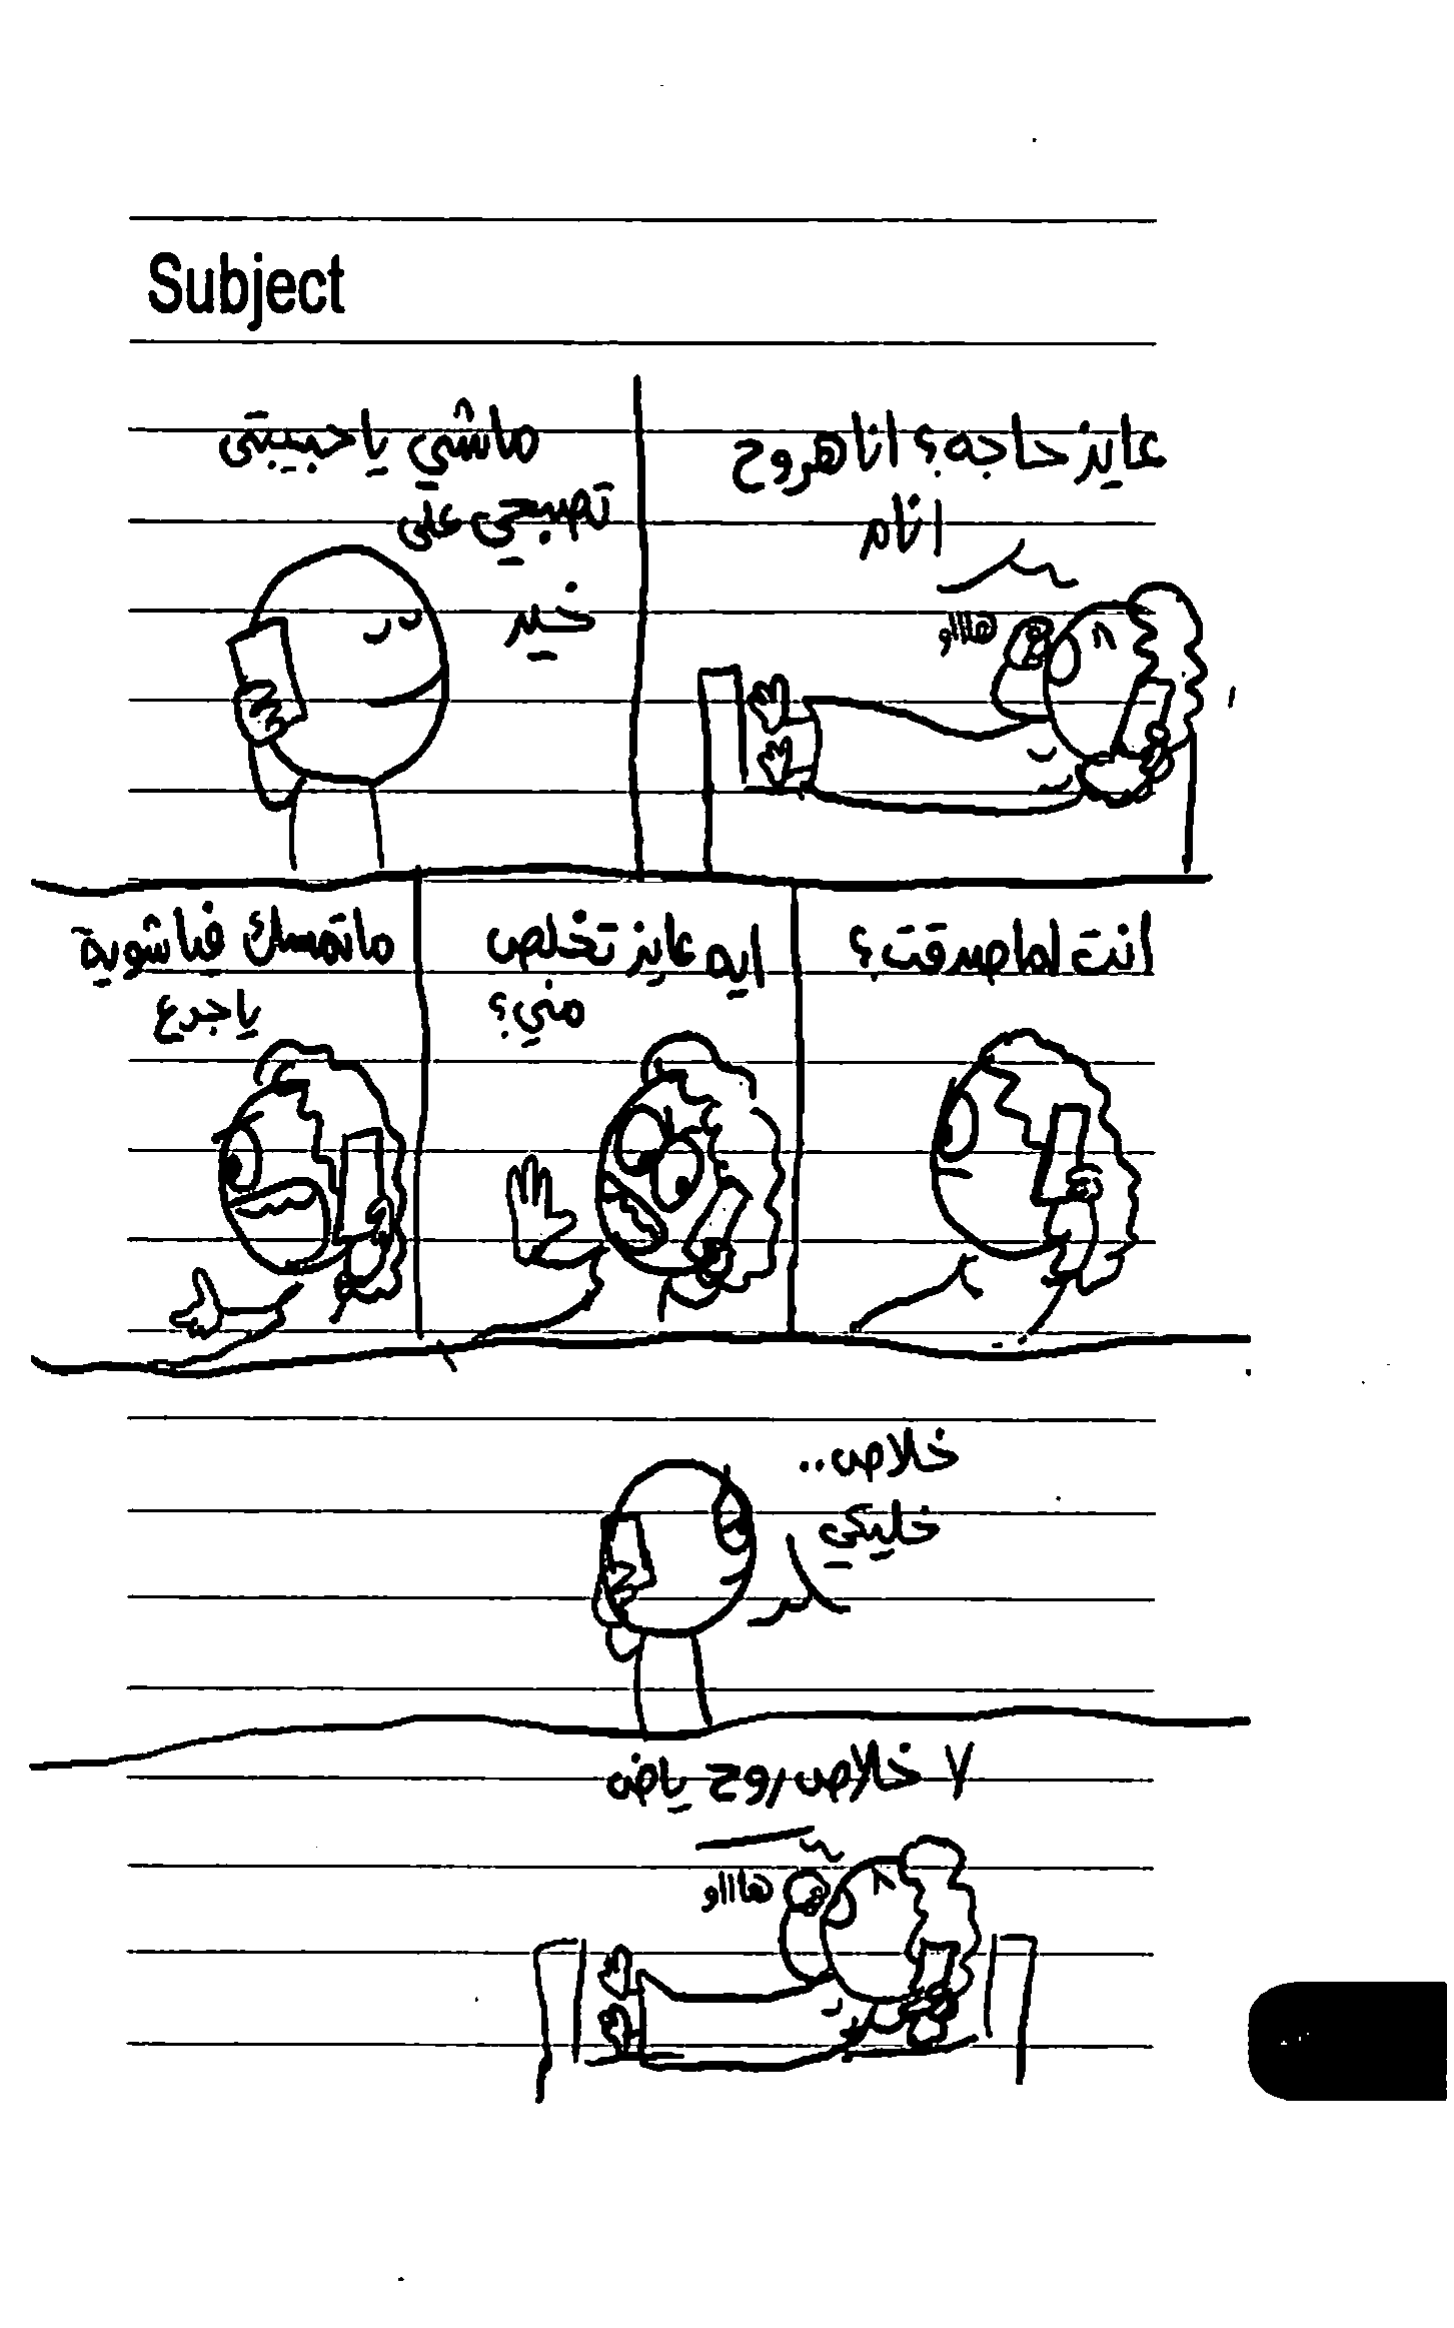 Subject
عايز حاجه؟ انا هروح
انام
هااااو
ماشي يا حبيبتى
تصبحي على
خير
انت لما صدقت؟
ايه عايز تخلص
مني؟
ماتمسك فيا شوية
يا جدع
خلاص..
خليكي
لا خلاص روح ياض
هااااو